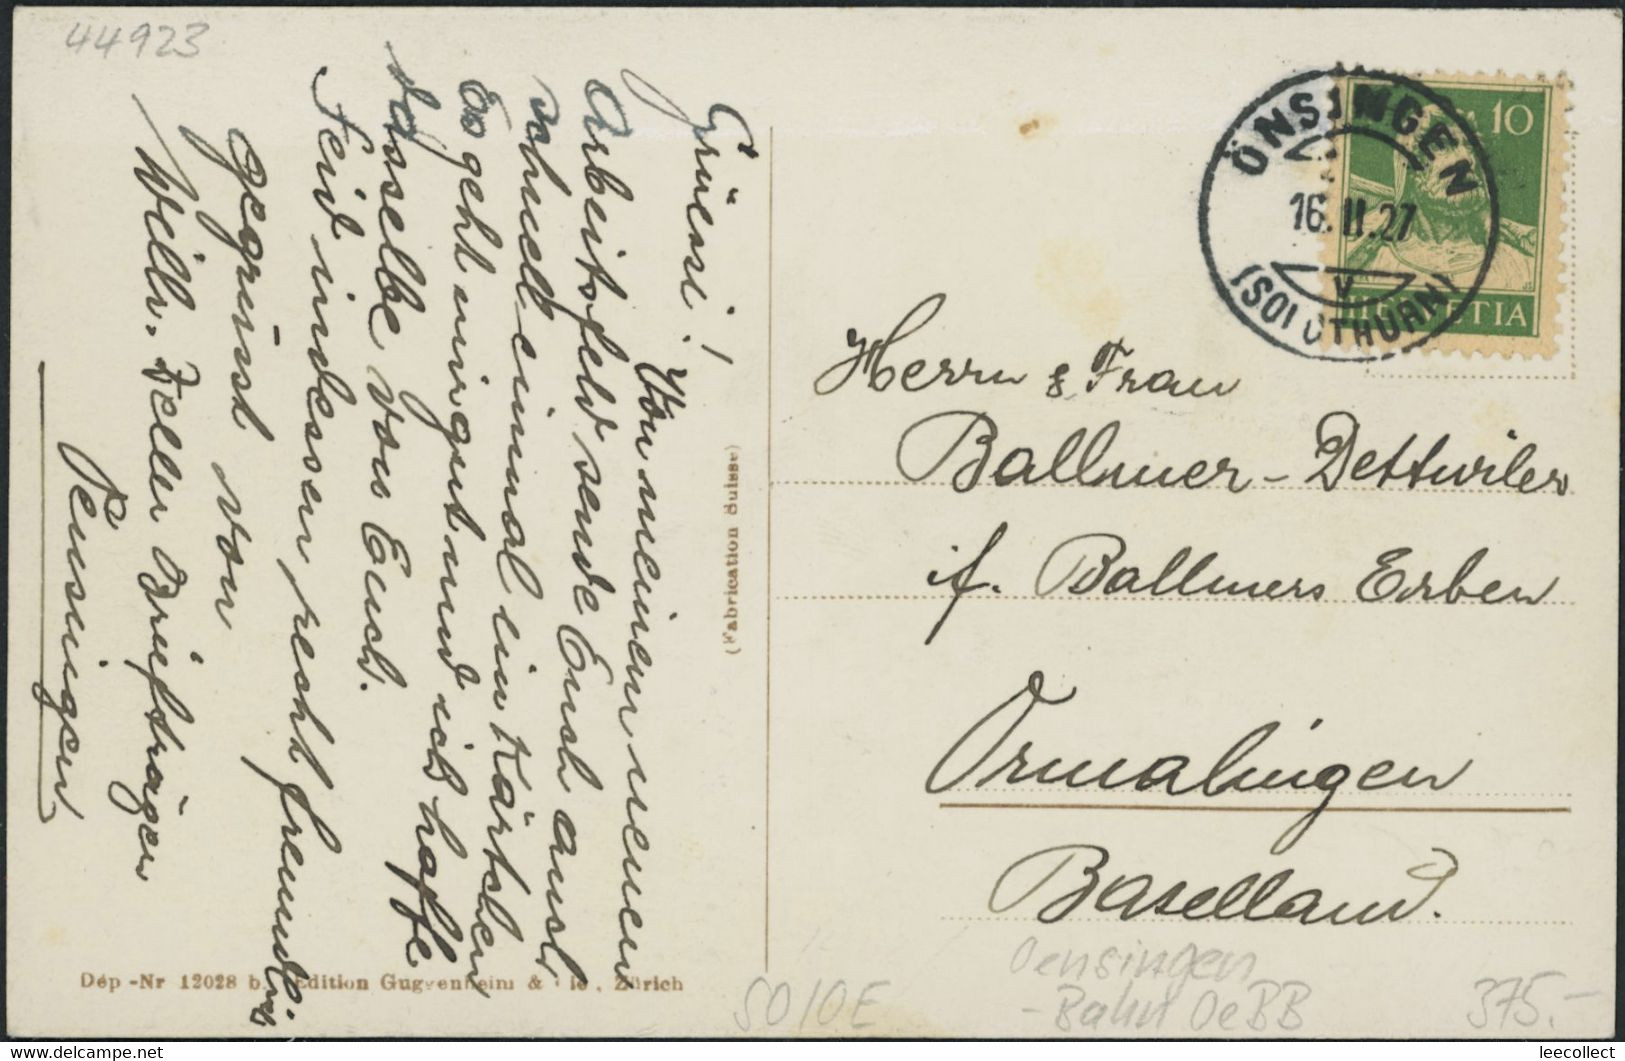 44923
Grüessi!
Von meinem neuen
Arbeitsfeld sende Euch auch
schnell einmal ein Kärtchen
Es geht mir gut und ich hoffe
dasselbe von Euch.
Seid indessen recht freundl.
gegrüsst von
Willi. Feller Briefträger
Oensingen
(Fabrication Suisse)
Dép -Nr 12028 b. Edition Guggenheim & Cie, Zürich
10
HELVETIA
ÖNSINGEN
16. II. 27
V
(SOLOTHURN)
Herrn & Frau
Ballmer-Dettwiler
f. Ballmers Erben
Ormalingen
Baselland.
SO/OE
Oensingen
- Bahn OeBB
375.-
leecollect